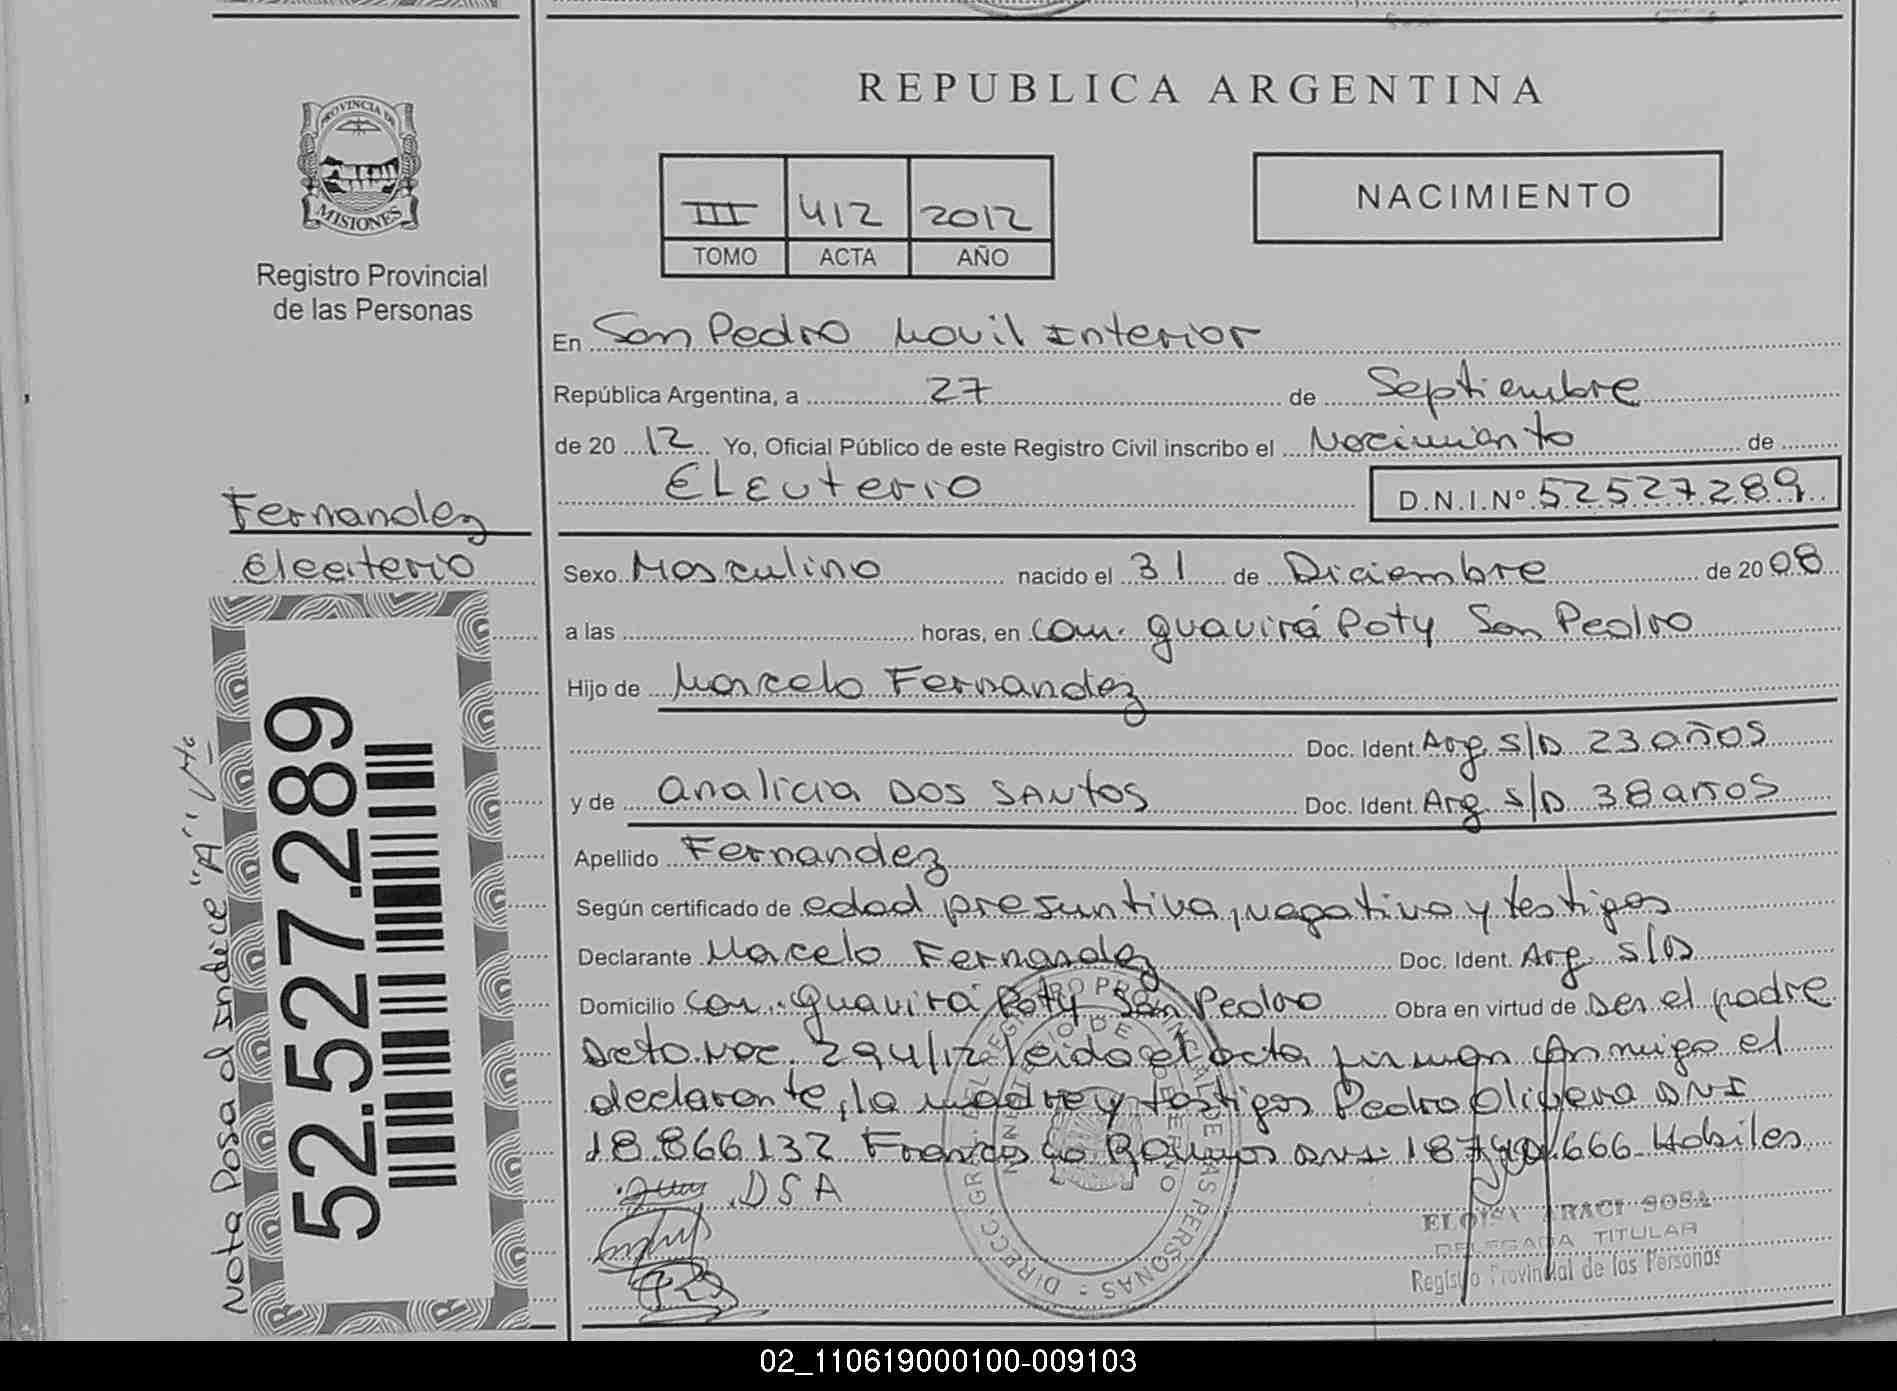 REPUBLICA ARGENTINA
PROVINCIA DE
MISIONES
Registro Provincial
de las Personas
III 412 2012
TOMO ACTA AÑO
NACIMIENTO
En San Pedro Movil Interior
República Argentina, a 27 de Septiembre
de 20 12 Yo, Oficial Público de este Registro Civil inscribo el Nacimiento de
Eleuterio D.N.I.Nº 52527289
Fernandez
Eleuterio
Sexo Masculino nacido el 31 de Diciembre de 20 08
a las horas, en Com. Guavirá Poty San Pedro
Hijo de Marcelo Fernandez
Doc. Ident. Arg. S/D 23 años
y de Analicia Dos Santos Doc. Ident. Arg. S/D 38 años
Apellido Fernandez
Según certificado de edad presuntiva, negativa y testigos
Declarante Marcelo Fernandez Doc. Ident. Arg. S/D
Domicilio Com. Guavirá Poty San Pedro Obra en virtud de ser el padre
Dcto. Nac. 294/12 leido el acta firman conmigo el
declarante, la madre y testigos Pedro Olivera DNI
18.866.132 Francisco Ramos DNI 18 666 Habiles
DSA
ELOISA ARACI SOSA
DELEGADA TITULAR
Registro Provincial de las Personas
52.527.289
Nota Posa al Indice "A"
02_110619000100-009103